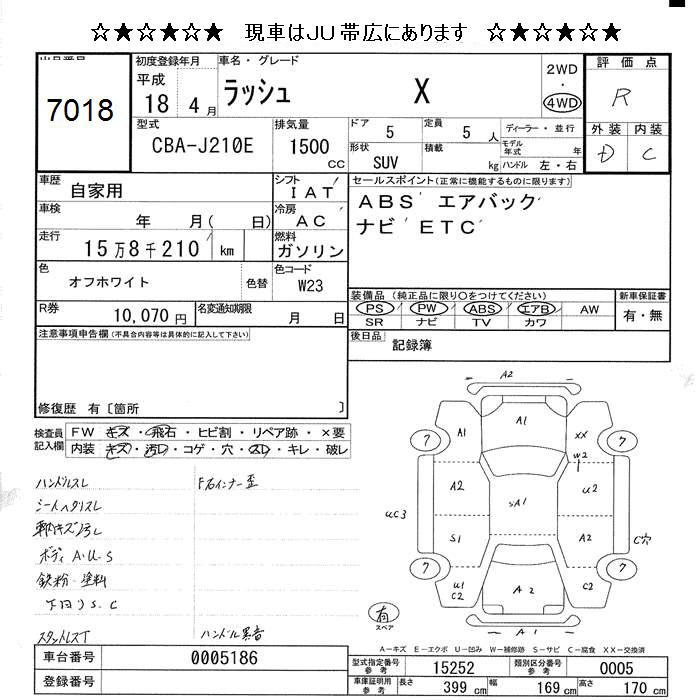 ☆★☆★☆★☆ 現車はJU帯広にあります ☆★☆★☆★☆
出品番号
7018
初度登録年月
平成
18 4 月
車名・グレード
ラッシュ X
2WD
・
4WD
評価点
R
外装 内装
D C
型式
CBA-J210E
排気量
1500
CC
ドア
5
定員
5 人
形状
SUV
積載
kg
ディーラー・並行
モデル年式 年
ハンドル 左・右
車歴
自家用
シフト
IAT
車検
年 月( 日)
冷房
AC
走行
15万8千210 km
燃料
ガソリン
色
オフホワイト
色替
色コード
W23
R券
10,070 円
名変通知期限
月 日
セールスポイント(正常に機能するものに限ります)
ABS エアバック
ナビ ETC
装備品 (純正品に限り○をつけてください)
PS PW ABS エアB AW
SR ナビ TV カワ
新車保証書
有・無
後日品
記録簿
注意事項申告欄(不具合内容等は具体的に記入して下さい)
修復歴 有〔箇所 〕
検査員
記入欄
FW キズ・飛石・ヒビ割・リペア跡・×要
内装 キズ・汚レ・コゲ・穴・スレ・キレ・破レ
ハンドルスレ
シートヘタリスレ
ボディ A.U.S
鉄粉・塗料
下回りS.C
スタントレスT
F右インナー歪
ハンドル異音
A2
A1
A1
XX
W2
7
7
A2
SA1
U2
UC3
S1
A1
C穴
7
7
U1
C2
A2
C2
A1
有
スペア
A-キズ E-エクボ U-凹み W-補修跡 S-サビ C-腐食 XX-交換済
車台番号
0005186
登録番号
型式指定番号
参考
15252
類別区分番号
参考
0005
車庫証明用
参考
長さ 399 cm 幅 169 cm 高さ 170 cm